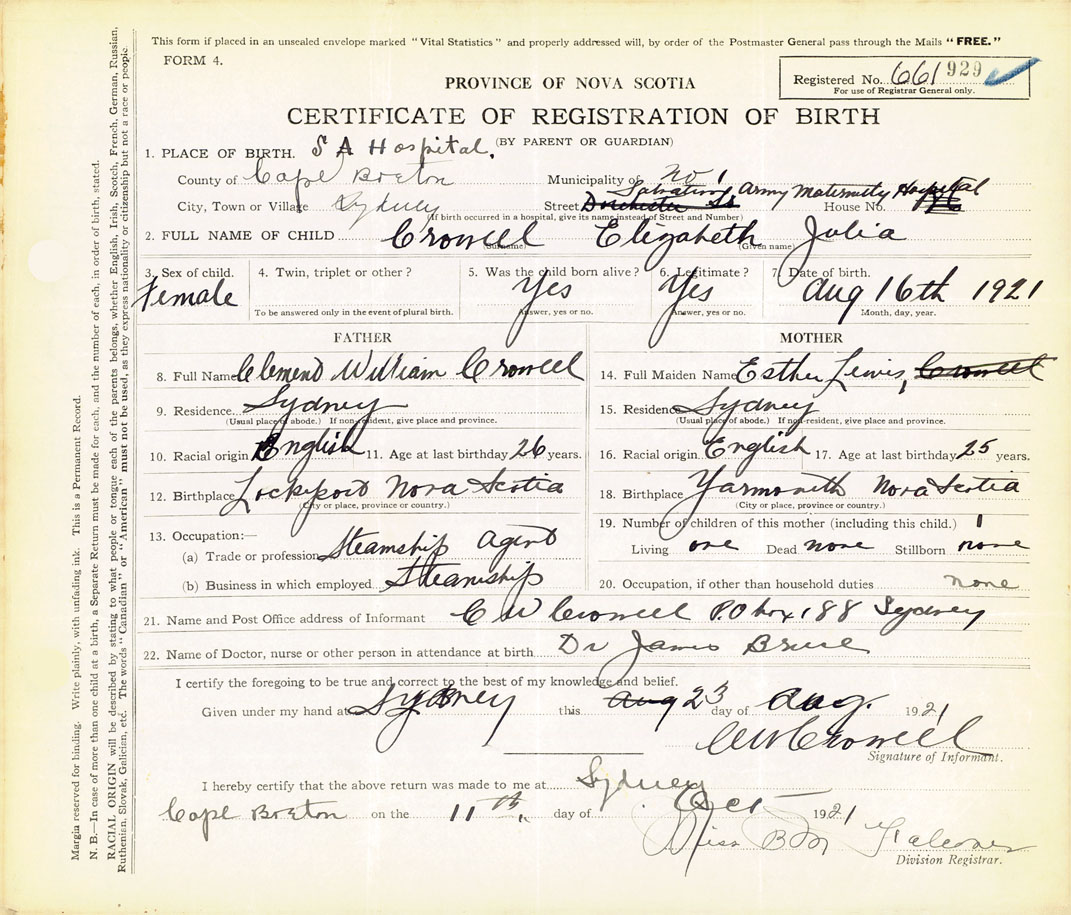 This form if placed in an unsealed envelope marked "Vital Statistics" and properly addressed will, by order of the Postmaster General pass through the Mails "FREE."
FORM 4.
Registered No. 661 929
For use of Registrar General only.
PROVINCE OF NOVA SCOTIA
CERTIFICATE OF REGISTRATION OF BIRTH
(BY PARENT OR GUARDIAN)
1. PLACE OF BIRTH. S A Hospital.
County of Cape Breton Municipality of No 1
City, Town or Village Sydney Street Dorchester St Salvation Army Maternity Hospital House No.
(If birth occurred in a hospital, give its name instead of Street and Number)
2. FULL NAME OF CHILD Crowell Elizabeth Julia
(Surname) (Given name)
3. Sex of child. 4. Twin, triplet or other? 5. Was the child born alive? 6. Legitimate? 7. Date of birth.
Female Yes Yes Aug 16th 1921
To be answered only in the event of plural birth. Answer, yes or no. Answer, yes or no. Month, day, year.
FATHER
8. Full Name Clemend William Crowell
9. Residence Sydney
(Usual place of abode.) If non-resident, give place and province.
10. Racial origin English 11. Age at last birthday 26 years.
12. Birthplace Lockeport Nova Scotia
(City or place, province or country.)
13. Occupation:—
(a) Trade or profession Steamship Agent
(b) Business in which employed Steamship
MOTHER
14. Full Maiden Name Esther Lewis, Crowell
15. Residence Sydney
(Usual place of abode.) If non-resident, give place and province.
16. Racial origin English 17. Age at last birthday 25 years.
18. Birthplace Yarmouth Nova Scotia
(City or place, province or country.)
19. Number of children of this mother (including this child.) 1
Living one Dead none Stillborn none
20. Occupation, if other than household duties none
21. Name and Post Office address of Informant C W Crowell P.O box 188 Sydney
22. Name of Doctor, nurse or other person in attendance at birth Dr James Bruce
I certify the foregoing to be true and correct to the best of my knowledge and belief.
Given under my hand at Sydney this Aug 23 day of Aug. 1921
CW Crowell
Signature of Informant.
I hereby certify that the above return was made to me at Sydney
Cape Breton on the 11th day of Oct 1921
Miss B M Falconer
Division Registrar.
Margin reserved for binding. Write plainly, with unfading ink. This is a Permanent Record.
N. B.—In case of more than one child at a birth, a Separate Return must be made for each, and the number of each, in order of birth, stated.
RACIAL ORIGIN will be described by stating to what people or tongue each of the parents belongs, whether English, Irish, Scotch, French, German, Russian,
Ruthenian, Slovak, Galician, etc. The words "Canadian" or "American" must not be used, as they express nationality or citizenship but not a race or people.